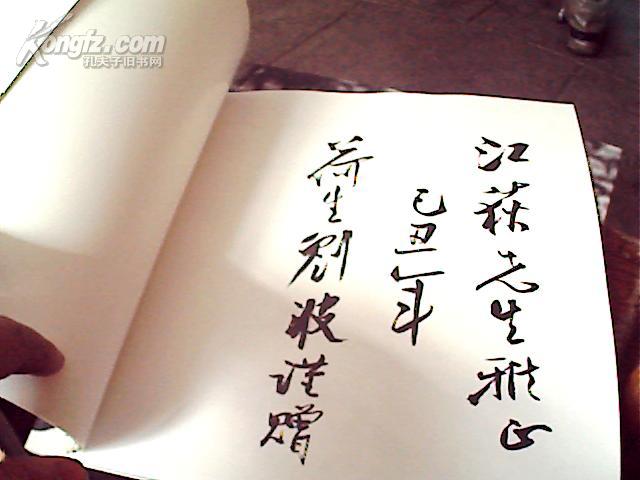 Kongfz.com
孔夫子旧书网
江荻先生雅正
己丑年
荷生刘波谨赠